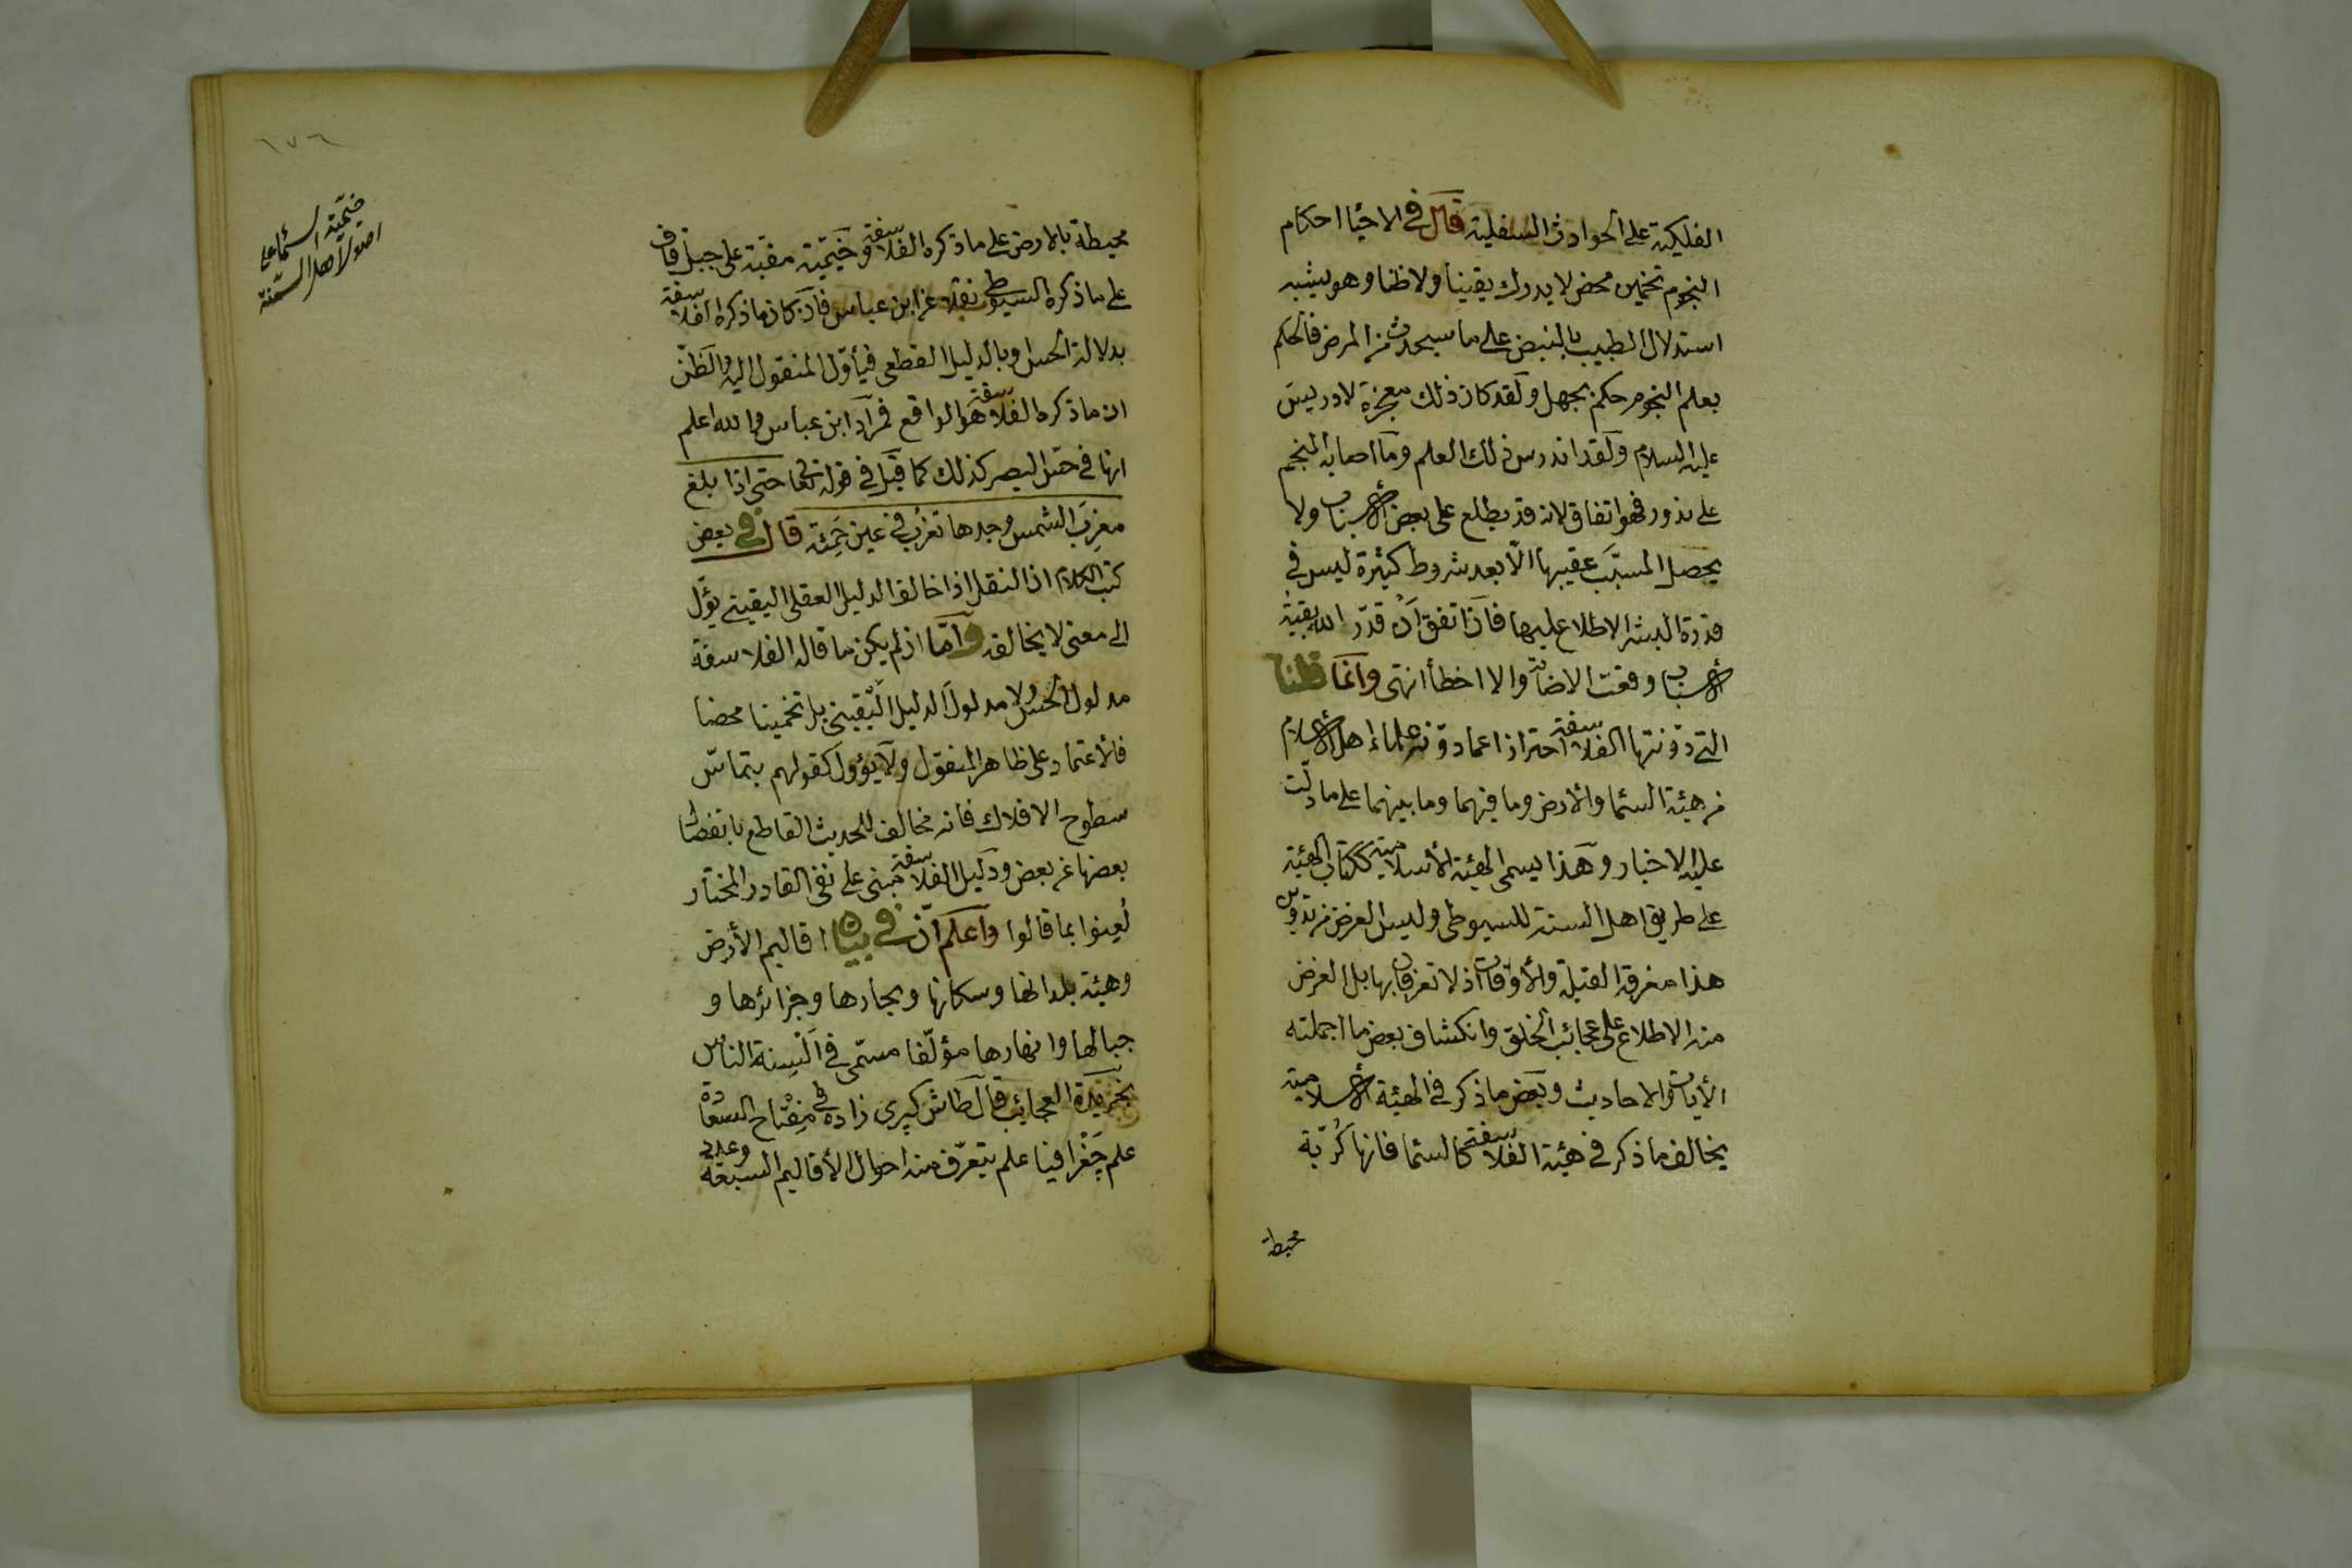 الفلكية على الحوادث السفلية قال في الاحيا احكام
النجوم تخمين محض لا يدرك يقينا ولا ظنا وهو يشبه
استدلال الطبيب بالنبض على ما سيحدث من المرض فالحكم
بعلم النجوم حكم بجهل ولقد كان ذلك معجزة لادريس
عليه السلام ولقد اندرس ذلك العلم وما اصابه المنجم
على ندور فهو اتفاق لانه قد يطلع على بعض الاسباب ولا
يحصل المسبّب عقيبها الّا بعد شروط كثيرة ليس في
قدرة البشر الاطلاع عليها فان اتفق أنْ قدّر الله بقية
الاسباب وقعت الاصابة والا اخطأ انتهى وانما قلنا
التي دوّنتها الفلاسفة احترازا عما دوّنه علماء اهل الاسلام
من هيئة السما والارض وما فيهما وما بينهما على ما دلّت
عليه الاخبار وهذا يسمى الهيئة الاسلامية ككتاب الهيئة
على طريق اهل السنة للسيوطى وليس الغرض من تدوين
هذا معرفة القبلة والأوقات اذ لا تعرفان بها بل الغرض
منه الاطلاع على عجائب الخلق وانكشاف بعض ما اجملته
الأيات والاحاديث وبعض ما ذكر في الهيئة الاسلامية
يخالف ما ذكر في هيئة الفلاسفة كالسما فانها كُريّة
محيطة
١٧٦
خيميّة السما على
اصول اهل السنة
محيطة بالارض على ما ذكره الفلاسفة وخَيميّة مقبّبة على جبل قاف
على ما ذكره السيوطي نقلا عن ابن عباس فان كان ما ذكره الفلاسفة
بدلالة الحس او بالدليل القطعى فيأوّل المنقول اليه والظنّ
ان ما ذكره الفلاسفة هو الواقع فمراد ابن عباس والله اعلم
انها في حسّ البصر كذلك كما قيل في قوله تعالى حتى اذا بلغ
مغرِبَ الشمس وجدها تغرُبُ في عين حَمِئة قال في بعض
كتب الكلام ان النقل اذا خالف الدليل العقلى اليقيني يؤّل
الى معنى لا يخالفه وأمّا ان لم يكن ما قاله الفلاسفة
مدلول الحس ولا مدلولَ الدليل اليقينى بل تخمينا محضا
فالاعتماد على ظاهر المنقول ولا يؤول كقولهم بتماسّ
سطوح الافلاك فانه مخالف للحديث القاطع بانفصال
بعضها عن بعض ودليل الفلاسفة مبنى على نفى القادر المختار
لُعِنوا بما قالوا واعلم أنّ في بيان اقاليم الأرض
وهيئة بلدانها وسكانها وبحارها وجزائرها و
جبالها وانهارها مؤلّفا مسمّى في اَلْسِنة الناس
بخَريدَة العجائب قال طاش كپرى زاده في مِفْتاح السعادة
علم جَغْرافيا علم يتعرّف منه احوال الأقاليم السبعة وعدد